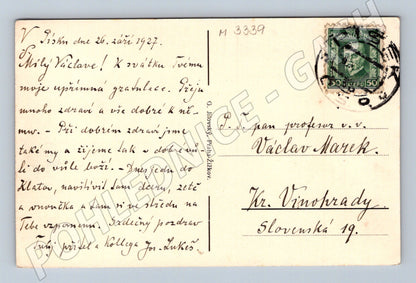 M 3339
V Písku dne 26. září 1927.
Milý Václave! K svátku Tvému
moje upřímná gratulace. Přeju
mnoho zdraví a vše dobré k
– Při dobrém zdraví jsme
také my a žijeme tak – dobe
li do vůle boží. – Dnes jedu do
Klatov, navštívit tam dceru, zetě
a vnoučka a tam si ve středu na
Tebe vzpomenu. Srdečný pozdrav
Tvůj přítel a kollega Jos. Lukeš
P. T. pan profesor v. v.
Václav Marek.
Kr. Vinohrady
Slovenská 19.
50 50
POHLEDNICE - GALH